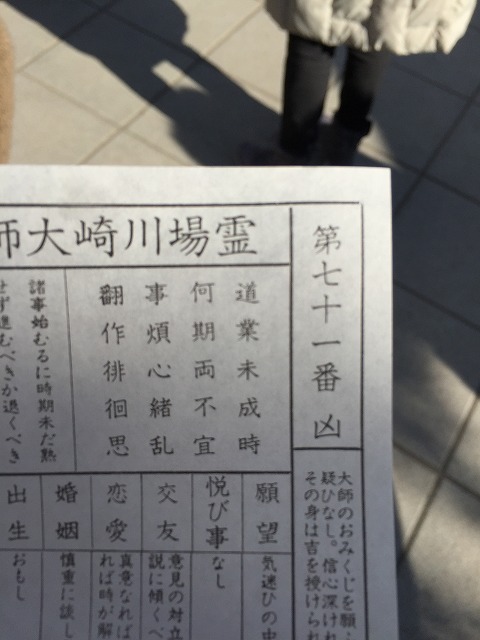 霊場川崎大師
第七十一番 凶
大師のおみくじを願
疑ひなし。信心深けれ
その身は吉を授けられ
道業未成時
何期両不宜
事煩心緒乱
翻作徘徊思
諸事始むるに時期未だ熟
せず進むべきか退くべき
願望
気迷ひの中
悦び事
なし
交友
意見の対立
説に傾くべ
恋愛
真意なれば
れば時が解
婚姻
慎重に談し
出生
おもし